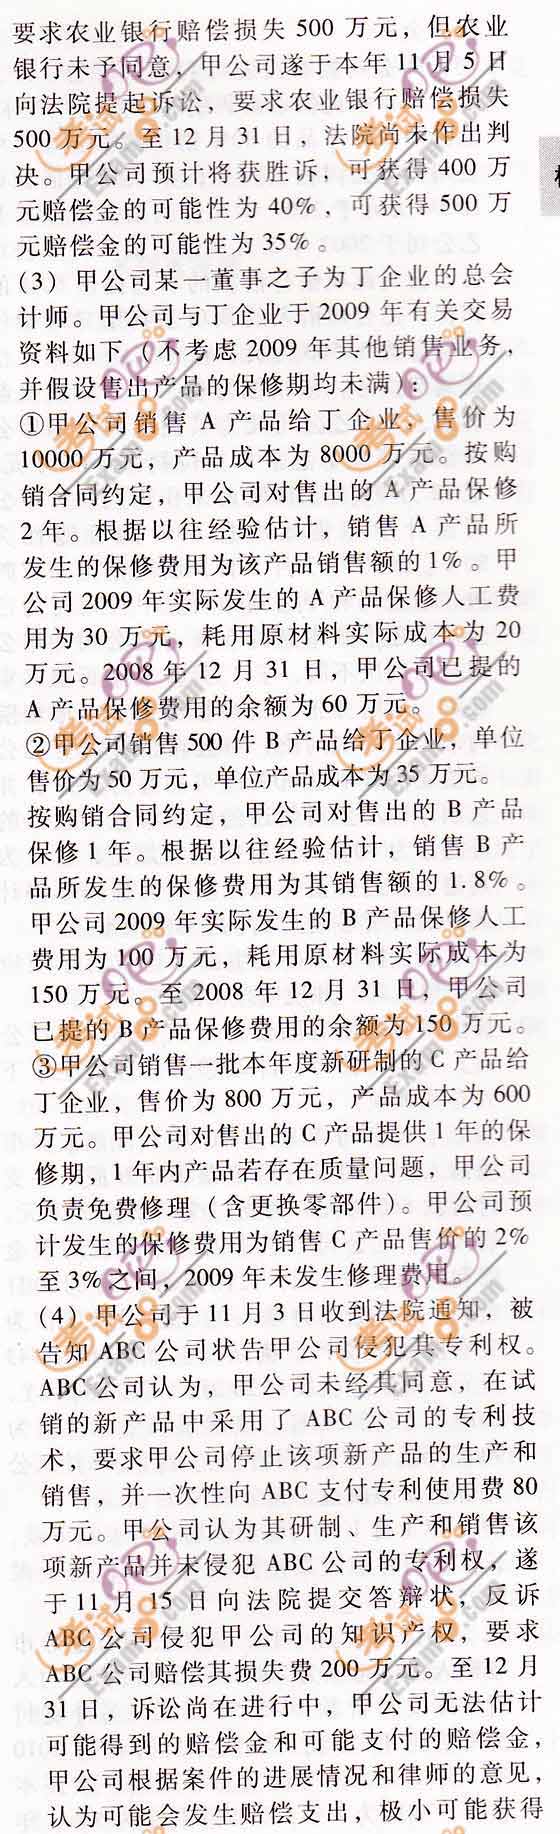 要求农业银行赔偿损失 500 万元，但农业
银行未予同意，甲公司遂于本年 11 月 5 日
向法院提起诉讼，要求农业银行赔偿损失
500 万元。至 12 月 31 日，法院尚未作出判
决。甲公司预计将获胜诉，可获得 400 万
元赔偿金的可能性为 40%，可获得 500 万
元赔偿金的可能性为 35%。
(3) 甲公司某一董事之子为丁企业的总会
计师。甲公司与丁企业于 2009 年有关交易
资料如下（不考虑 2009 年其他销售业务，
并假设售出产品的保修期均未满）：
①甲公司销售 A 产品给丁企业，售价为
10000 万元，产品成本为 8000 万元。按购
销合同约定，甲公司对售出的 A 产品保修
2 年。根据以往经验估计，销售 A 产品所
发生的保修费用为该产品销售额的 1%。甲
公司 2009 年实际发生的 A 产品保修人工费
用为 30 万元，耗用原材料实际成本为 20
万元。2008 年 12 月 31 日，甲公司已提的
A 产品保修费用的余额为 60 万元。
②甲公司销售 500 件 B 产品给丁企业，单位
售价为 50 万元，单位产品成本为 35 万元。
按购销合同约定，甲公司对售出的 B 产品
保修 1 年。根据以往经验估计，销售 B 产
品所发生的保修费用为其销售额的 1.8%。
甲公司 2009 年实际发生的 B 产品保修人工
费用为 100 万元，耗用原材料实际成本为
150 万元。至 2008 年 12 月 31 日，甲公司
已提的 B 产品保修费用的余额为 150 万元。
③甲公司销售一批本年度新研制的 C 产品给
丁企业，售价为 800 万元，产品成本为 600
万元。甲公司对售出的 C 产品提供 1 年的保
修期，1 年内产品若存在质量问题，甲公司
负责免费修理（含更换零部件）。甲公司预
计发生的保修费用为销售 C 产品售价的 2%
至 3% 之间，2009 年未发生修理费用。
(4) 甲公司于 11 月 3 日收到法院通知，被
告知 ABC 公司状告甲公司侵犯其专利权。
ABC 公司认为，甲公司未经其同意，在试
销的新产品中采用了 ABC 公司的专利技
术，要求甲公司停止该项新产品的生产和
销售，并一次性向 ABC 支付专利使用费 80
万元。甲公司认为其研制、生产和销售该
项新产品并未侵犯 ABC 公司的专利权，遂
于 11 月 15 日向法院提交答辩状，反诉
ABC 公司侵犯甲公司的知识产权，要求
ABC 公司赔偿其损失费 200 万元。至 12 月
31 日，诉讼尚在进行中，甲公司无法估计
可能得到的赔偿金和可能支付的赔偿金，
甲公司根据案件的进展情况和律师的意见，
认为可能会发生赔偿支出，极小可能获得